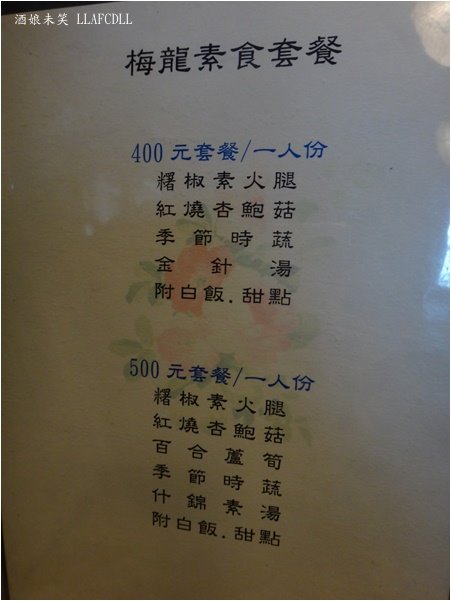 酒娘未笑 LLAFCDLL
梅龍素食套餐
400元套餐/一人份
糬椒素火腿
紅燒杏鮑菇
季節時蔬
金針湯
附白飯.甜點
500元套餐/一人份
糬椒素火腿
紅燒杏鮑菇
百合蘆筍
季節時蔬
什錦素湯
附白飯.甜點